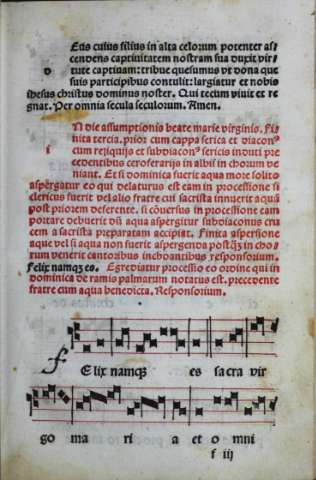 Eus cuius filius in alta celorum potenter as/
cendens captiuitatem nostram sua duxit vir/
d tute captiuam: tribue quesumus vt dona que
suis participibus contulit: largiatur et nobis
ihesus christus dominus noster. Qui tecum viuit et re
gnat. Per omnia secula seculorum. Amen.
N die assumptionis beate marie virginis. Fi
nita tercia. prior cum cappa serica et diacon⁹
i cum reliquijs et subdiacon⁹ sericis induti pre
cedentibus ceroferarijs in albis in chorum ve
niant. Et si dominica fuerit aqua more solito
aspergatur eo qui delaturus est eam in processione si
clericus fuerit vel alio fratre cui sacrista innuerit aquā
post priorem deferente. si cōuersus in processione eam
portare debuerit dū aqua aspergitur subdiaconus cru
cem a sacrista preparatam accipiat. Finita aspersione
aque vel si aqua non fuerit aspergenda postq̄ in cho/
rum venerit cantoribus inchoantibus responsorium.
Felix namq₃ es. Egrediatur processio eo ordine qui in
dominica de ramis palmarum notatus est. precedente
fratre cum aqua benedicta. Responsorium.
f Elix namq₃ es sacra vir
go maria et omni
f iij